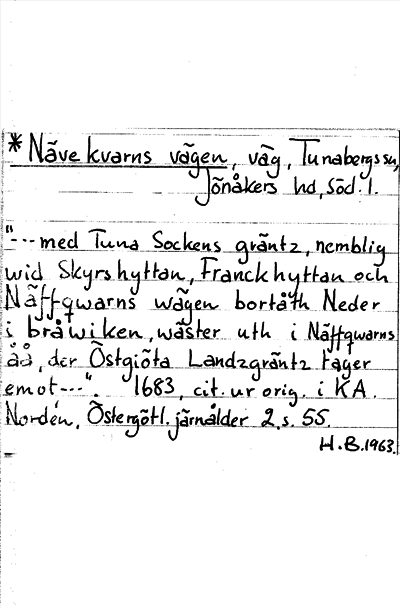 * Näve kvarns vägen, väg, Tunabergs sn,
Jönåkers hd, Söd. l.
"--- med Tuna Sockens gräntz, nemblig
wid Skyrshyttan, Franckhyttan och
Näffqwarns wägen bortåth Neder
i bråwiken, wäster uth i Näffqwarns
åå, der Östgiöta Landzgräntz tager
emot---". 1683, cit. ur orig. i KA.
Nordén, Östergötl. järnålder 2, s. 55.
H.B. 1963.